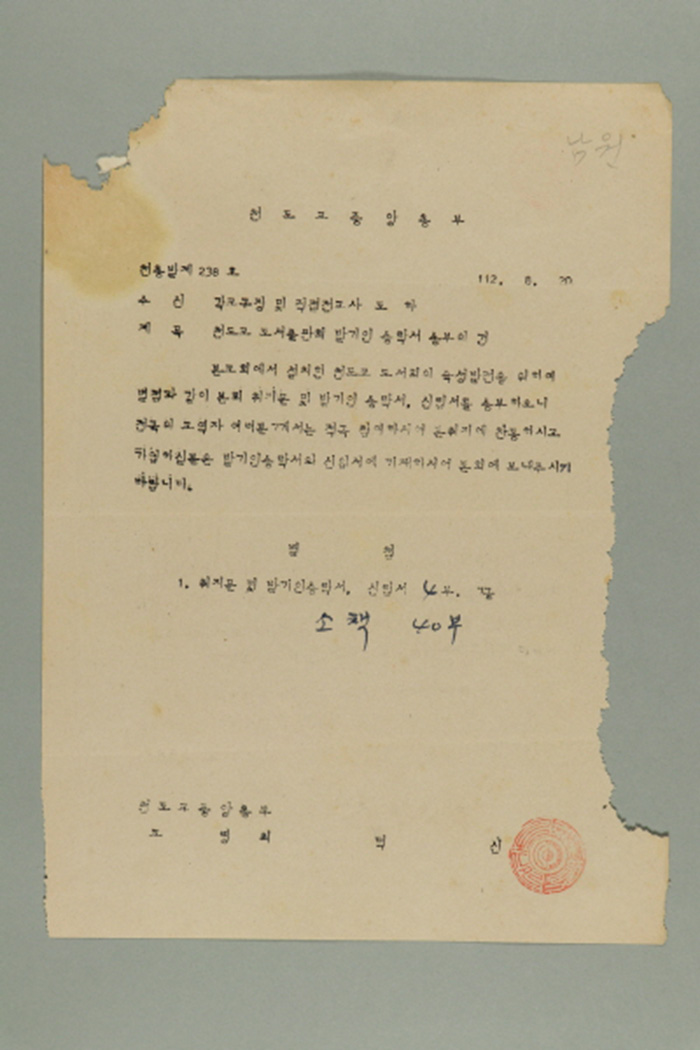 남원
천도교중앙총부
천총발제 238 호
112. 8. 20
수 신 각교구장 및 직접전교사 도 하
제 목 천도교 도서출판회 발기인 승락서 송부의 건
본교회에서 설치한 천도교 도서회의 육성발전을 위하여
별첨과 같이 본회 취지문 및 발기인 승락서, 신청서를 송부하오니
전국의 교역자 여러분께서는 적극 참여하시어 본취지에 찬동하시고
가입하실분은 발기인승락서와 신청서에 기재하시어 본회에 보내주시기
바랍니다.
별 첨
1. 취지문 및 발기인승락서, 신청서 4부. 끝
소책 40부
천도교중앙총부
교 령 최 덕 신